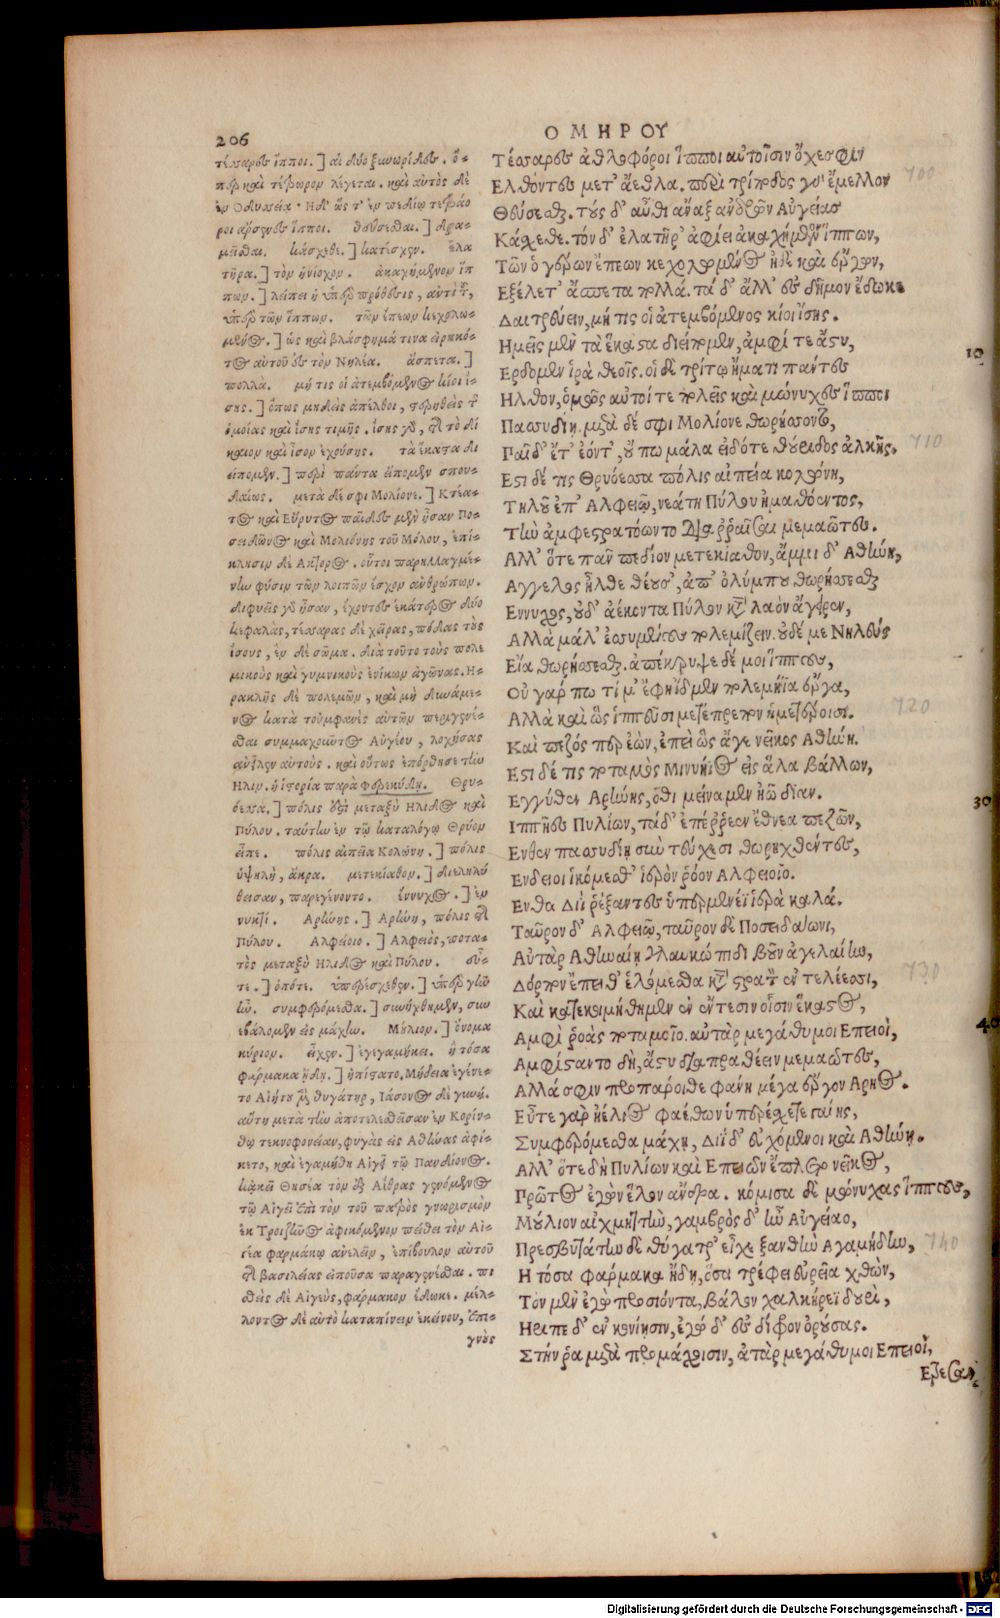 206
ΟΜΗΡΟΥ
τέσσαρες ἵπποι.] αἱ δύο ξυνωρίδες. ὅ-
περ καὶ τέτρωρον λέγεται. καὶ αὐτὸς δὲ
ἐν Ὀδυσσείᾳ· Ἡ δ' ὥς τ' ἐν πεδίῳ τετράο
ροι ἄρσενες ἵπποι. θεύσεσθαι.] δρα-
μεῖσθαι. κάσχεθε.] κατέσχεν. ἐλα
τῆρα.] τὸν ἡνίοχον. ἀκαχήμενον ἵπ
πων.] λείπει ἡ ὑπὲρ πρόθεσις, ἀντὶ τοῦ,
ὑπὲρ τῶν ἵππων. τῶν ἐπέων κεχολω-
μένος.] ὡς καὶ βλάσφημά τινα εἰρηκό-
τος αὐτοῦ εἰς τὸν Νηλέα. ἄσπετα.]
πολλά. μή τις οἱ ἀτεμβόμενος κίοι ἴ-
σης.] ὅπως μηδεὶς ἀπέλθοι, στερηθεὶς τῆς
ὁμοίας καὶ ἴσης τιμῆς. ἴσης γὰρ, τῆς τὸ δί
καιον καὶ ἴσον ἐχούσης. τὰ ἕκαστα δι
είπομεν.] περὶ πάντα εἵπομεν σπου-
δαίως. μετὰ δέ σφι Μολίονε.] Κτέα-
τος καὶ Εὔρυτος παῖδες μὲν ἦσαν Πο-
σειδῶνος καὶ Μολιόνης τοῦ Μόλου, ἐπί-
κλησιν δὲ Ἄκτορος. οὗτοι παρηλλαγμέ-
νην φύσιν τῶν λοιπῶν ἔσχον ἀνθρώπων.
διφυεῖς γὰρ ἦσαν, ἔχοντες ἑκάτερος δύο
κεφαλὰς, τέσσαρας δὲ χεῖρας, πόδας τοὺς
ἴσους, ἓν δὲ σῶμα. διὰ τοῦτο τοὺς πολε
μικοὺς καὶ γυμνικοὺς ἐνίκων ἀγῶνας. Ἡ-
ρακλῆς δὲ πολεμῶν, καὶ μὴ δυνάμε-
νος κατὰ τοὐμφανὲς αὐτῶν περιγενέ-
σθαι συμμαχοῦντος Αὐγέου, λοχήσας
ἀνεῖλεν αὐτούς. καὶ οὕτως ἐπόρθησε τὴν
Ἦλιν. ἡ ἱστορία παρὰ Φερεκύδῃ. Θρυ-
όεσσα.] πόλις ἐστὶ μεταξὺ Ἤλιδος καὶ
Πύλου. ταύτην ἐν τῷ καταλόγῳ Θρύον
εἶπε. πόλις αἰπεῖα Κολώνη.] πόλις
ὑψηλή, ἄκρα. μετεκίαθον.] διεληλύ
θεισαν, παρεγένοντο. ἔννυχος.] ἐν
νυκτί. Ἀρήνης.] Ἀρήνη, πόλις τῆς
Πύλου. Ἀλφειοῖο.] Ἀλφειὸς, ποτα-
τὸς μεταξὺ Ἤλιδος καὶ Πύλου. εὖ-
τε.] ὁπότε. ὑπερέσχεθεν.] ὑπὲρ γῆν
ἦν. συμφερόμεσθα.] συνήχθημεν, συν
εβάλομεν εἰς μάχην. Μούλιον.] ὄνομα
κύριον. εἶχεν.] ἐγεγαμήκει. ἣ τόσα
φάρμακα ᾔδη.] ἠπίστατο. Μήδεια ἐγένε-
το Αἰήτου μὲν θυγάτηρ, Ἰάσονος δὲ γυνή.
αὕτη μετὰ τὴν ἀποτελεσθεῖσαν ἐν Κορίν-
θῳ τεκνοφονείαν, φυγὰς εἰς Ἀθήνας ἀφί-
κετο, καὶ ἐγαμήθη Αἰγεῖ τῷ Πανδίονος.
κἀκεῖ Θησέα τὸν ἐξ Αἴθρας γενόμενον
τῷ Αἰγεῖ ἐπὶ τὸν τοῦ πατρὸς γνωρισμὸν
ἐκ Τροιζῆνος ἀφικόμενον πείθει τὸν Αἰ-
γέα φαρμάκῳ ἀνελεῖν, ἐπίβουλον αὐτοῦ
τῆς βασιλείας εἰποῦσα παραγενέσθαι. πι
σθεὶς δὲ Αἰγεὺς, φάρμακον ἔδωκε. μέλ-
λοντος δὲ αὐτὸ καταπίνειν ἐκείνου, ἐπι-
γνοὺς
Τέσσαρες ἀθλοφόροι ἵπποι αὐτοῖσιν ὄχεσφιν
Ἐλθόντες μετ' ἄεθλα. περὶ τρίποδος γὰρ ἔμελλον
Θεύσεσθαι. τοὺς δ' αὖθι ἄναξ ἀνδρῶν Αὐγείας
Κάσχεθε. τὸν δ' ἐλατῆρ' ἀφίει ἀκαχήμενον ἵππων,
Τῶν ὁ γέρων ἐπέων κεχολωμένος ἠδὲ καὶ ἔργων,
Ἐξέλετ' ἄσπετα πολλά. τὰ δ' ἄλλ' ἐς δῆμον ἔδωκε
Δαιτρεύειν, μή τις οἱ ἀτεμβόμενος κίοι ἴσης.
Ἡμεῖς μὲν τὰ ἕκαστα διείπομεν, ἀμφί τε ἄστυ,
Ἔρδομεν ἱρὰ θεοῖς. οἱ δὲ τρίτῳ ἤματι πάντες
Ἦλθον, ὁμῶς αὐτοί τε πολεῖς καὶ μώνυχες ἵπποι
Πασσυδίη. μετὰ δέ σφι Μολίονε θωρήσσοντο,
Παῖδ' ἔτ' ἐόντ', οὔ πω μάλα εἰδότε θούριδος ἀλκῆς.
Ἔστι δέ τις Θρυόεσσα πόλις αἰπεῖα κολώνη,
Τηλοῦ ἐπ' Ἀλφειῷ, νεάτη Πύλου ἠμαθόεντος,
Τὴν ἀμφεστρατόωντο διαρραῖσαι μεμαῶτες.
Ἀλλ' ὅτε πᾶν πεδίον μετεκίαθον, ἄμμι δ' Ἀθήνη,
Ἄγγελος ἦλθε θέουσ', ἀπ' ὀλύμπου θωρήσσεσθαι
Ἔννυχος, οὐδ' ἀέκοντα Πύλον κάτα λαὸν ἄγειρεν,
Ἀλλὰ μάλ' ἐσσυμένους πολεμίζειν. οὐδέ με Νηλεύς
Εἴα θωρήσσεσθαι. ἀπέκρυψε δέ μοι ἵππους,
Οὐ γάρ πω τί μ' ἔφη ἴδμεν πολεμήϊα ἔργα,
Ἀλλὰ καὶ ὣς ἱππεῦσι μετέπρεπον ἡμετέροισι.
Καὶ πεζός περ ἐὼν, ἐπεὶ ὣς ἄγε νεῖκος Ἀθήνη.
Ἔστι δέ τις ποταμὸς Μινυήϊος εἰς ἅλα βάλλων,
Ἐγγύθεν Ἀρήνης, ὅθι μείναμεν ἠῶ δῖαν.
Ἱππῆες Πυλίων, τὰ δ' ἐπέρρεεν ἔθνεα πεζῶν,
Ἔνθεν πασσυδίῃ σὺν τεύχεσι θωρηχθέντες,
Ἔνδειοι ἱκόμεσθ' ἱερὸν ῥόον Ἀλφειοῖο.
Ἔνθα Διῒ ῥέξαντες ὑπερμενέϊ ἱερὰ καλά.
Ταῦρον δ' Ἀλφειῷ, ταῦρον δὲ Ποσειδάωνι,
Αὐτὰρ Ἀθηναίῃ γλαυκώπιδι βοῦν ἀγελαίην,
Δόρπον ἔπειθ' ἑλόμεσθα κατὰ στρατὸν ἐν τελέεσσι,
Καὶ κατεκοιμήθημεν ἐν ἔντεσιν οἷσιν ἕκαστος,
Ἀμφὶ ῥοὰς ποταμοῖο. αὐτὰρ μεγάθυμοι Ἐπειοί,
Ἀμφίσταντο δὴ, ἄστυ διαπραθέειν μεμαῶτες,
Ἀλλά σφιν προπάροιθε φάνη μέγα ἔργον Ἄρηος.
Εὖτε γὰρ ἠέλιος φαέθων ὑπερέσχεθε γαίης,
Συμφερόμεσθα μάχῃ, Διΐ τ' εὐχόμενοι καὶ Ἀθήνῃ.
Ἀλλ' ὅτε δὴ Πυλίων καὶ Ἐπειῶν ἔπλετο νεῖκος,
Πρῶτος ἐγὼν ἕλον ἄνδρα. κόμισα δὲ μώνυχας ἵππους,
Μούλιον αἰχμητὴν, γαμβρὸς δ' ἦν Αὐγείαο,
Πρεσβυτάτην δὲ θύγατρ' εἶχε ξανθὴν Ἀγαμήδην,
Ἣ τόσα φάρμακα ᾔδη, ὅσα τρέφει εὐρεῖα χθών,
Τὸν μὲν ἐγὼ προσιόντα, βάλον χαλκήρεϊ δουρί,
Ἤριπε δ' ἐν κονίῃσιν, ἐγὼ δ' ἐς δίφρον ὀρούσας.
Στήν ῥα μετὰ προμάχοισιν, ἀτὰρ μεγάθυμοι Ἐπειοί,
Ἔτρεσαν
700
10
710
720
30
730
40
740
Digitalisierung gefördert durch die Deutsche Forschungsgemeinschaft - DFG